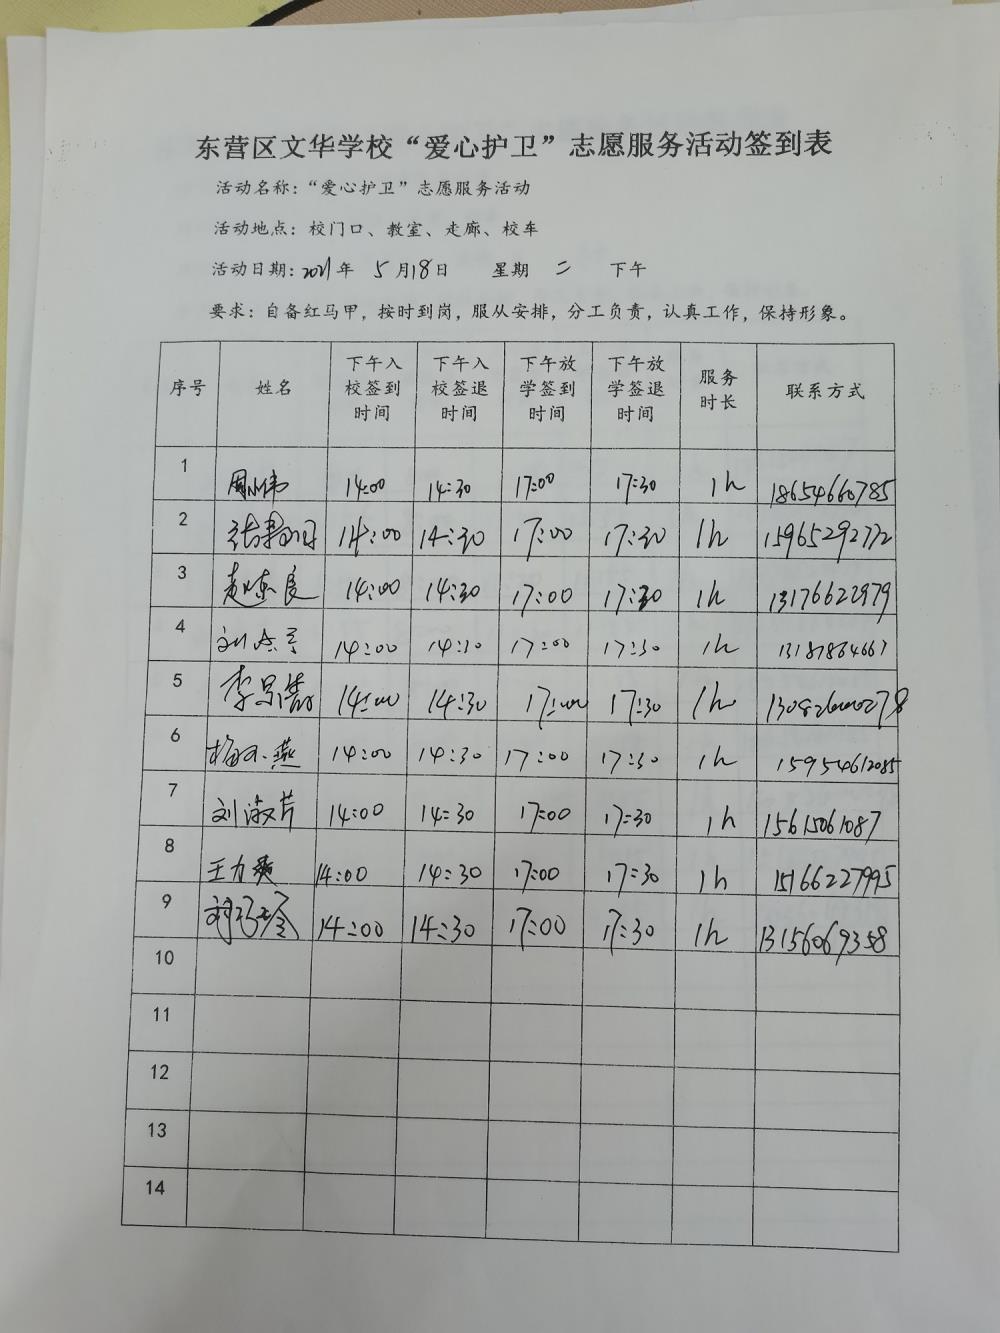 东营区文华学校“爱心护卫”志愿服务活动签到表
活动名称：“爱心护卫”志愿服务活动
活动地点：校门口、教室、走廊、校车
活动日期：2021年 5月18日 星期 二 下午
要求：自备红马甲，按时到岗，服从安排，分工负责，认真工作，保持形象。
序号 姓名 下午入校签到时间 下午入校签退时间 下午放学签到时间 下午放学签退时间 服务时长 联系方式
1 14:00 14:30 17:00 17:30 1h 18654660785
2 14:00 14:30 17:00 17:30 1h 15965292772
3 14:00 14:30 17:00 17:30 1h 13176622979
4 14:00 14:30 17:00 17:30 1h 13187864667
5 14:00 14:30 17:00 17:30 1h
6 14:00 14:30 17:00 17:30 1h 15954612085
7 刘淑芹 14:00 14:30 17:00 17:30 1h 15615061087
8 14:00 14:30 17:00 17:30 1h 15166227995
9 14:00 14:30 17:00 17:30 1h 13156069358
10
11
12
13
14